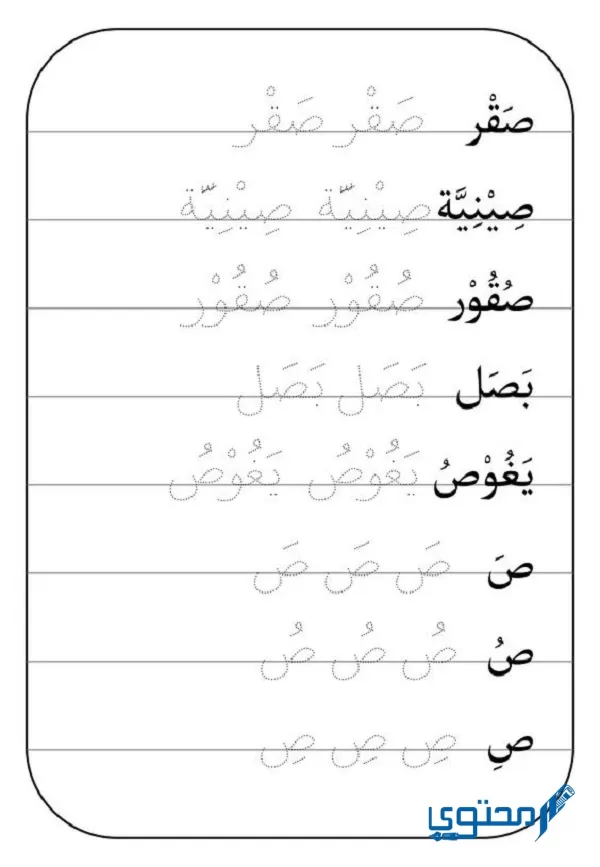 صَقْر صَقْر صَقْر
صِيْنِيَّة صِيْنِيَّة صِيْنِيَّة
صُقُوْر صُقُوْر صُقُوْر
بَصَل بَصَل بَصَل
يَغُوْصُ يَغُوْصُ يَغُوْصُ
صَ صَ صَ صَ
صُ صُ صُ صُ
صِ صِ صِ صِ
محتوى